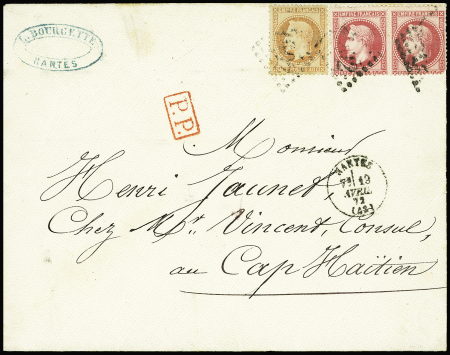 BOURGETTE
NANTES
EMPIRE FRANÇAIS
EMPIRE FRANÇAIS
EMPIRE FRANÇAIS
P.P.
Monsieur
Henri Jaunet
Chez Mr. Vincent, Consul,
au Cap Haïtien
NANTES
13
AVRIL
72